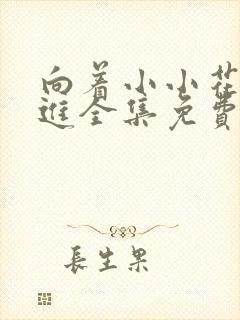 向着小小花
进全集免费
長生果